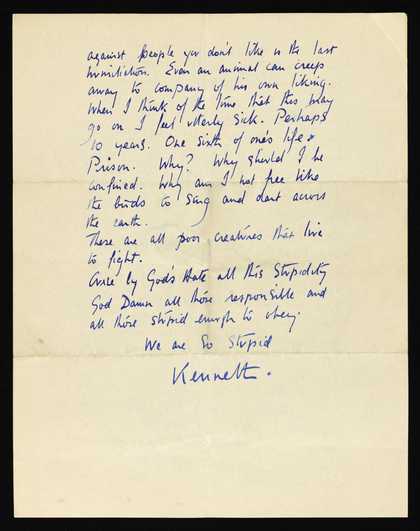 against people you don't like is the last
humiliation. Even an animal can creep
away to company of his own liking.
When I think of the time that this may
go on I feel utterly sick. Perhaps
10 years. One sixth of one's life
Prison. Why? Why should I be
confined. Why am I not free like
the birds to sing and dart across
the earth.
These are all poor creatures that live
to fight.
by God's Hate all this Stupidity
God Damn all those responsible and
all those stupid enough to obey.
We are So Stupid
Kenneth.